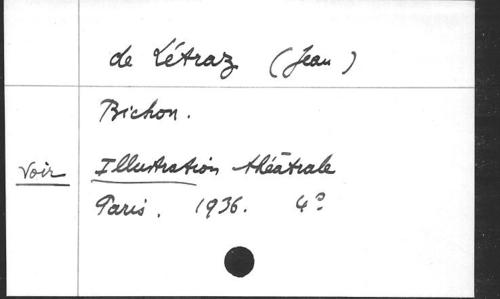 de Létraz (Jean)
Bichon.
Voir Illustration théâtrale
Paris. 1936. 4°